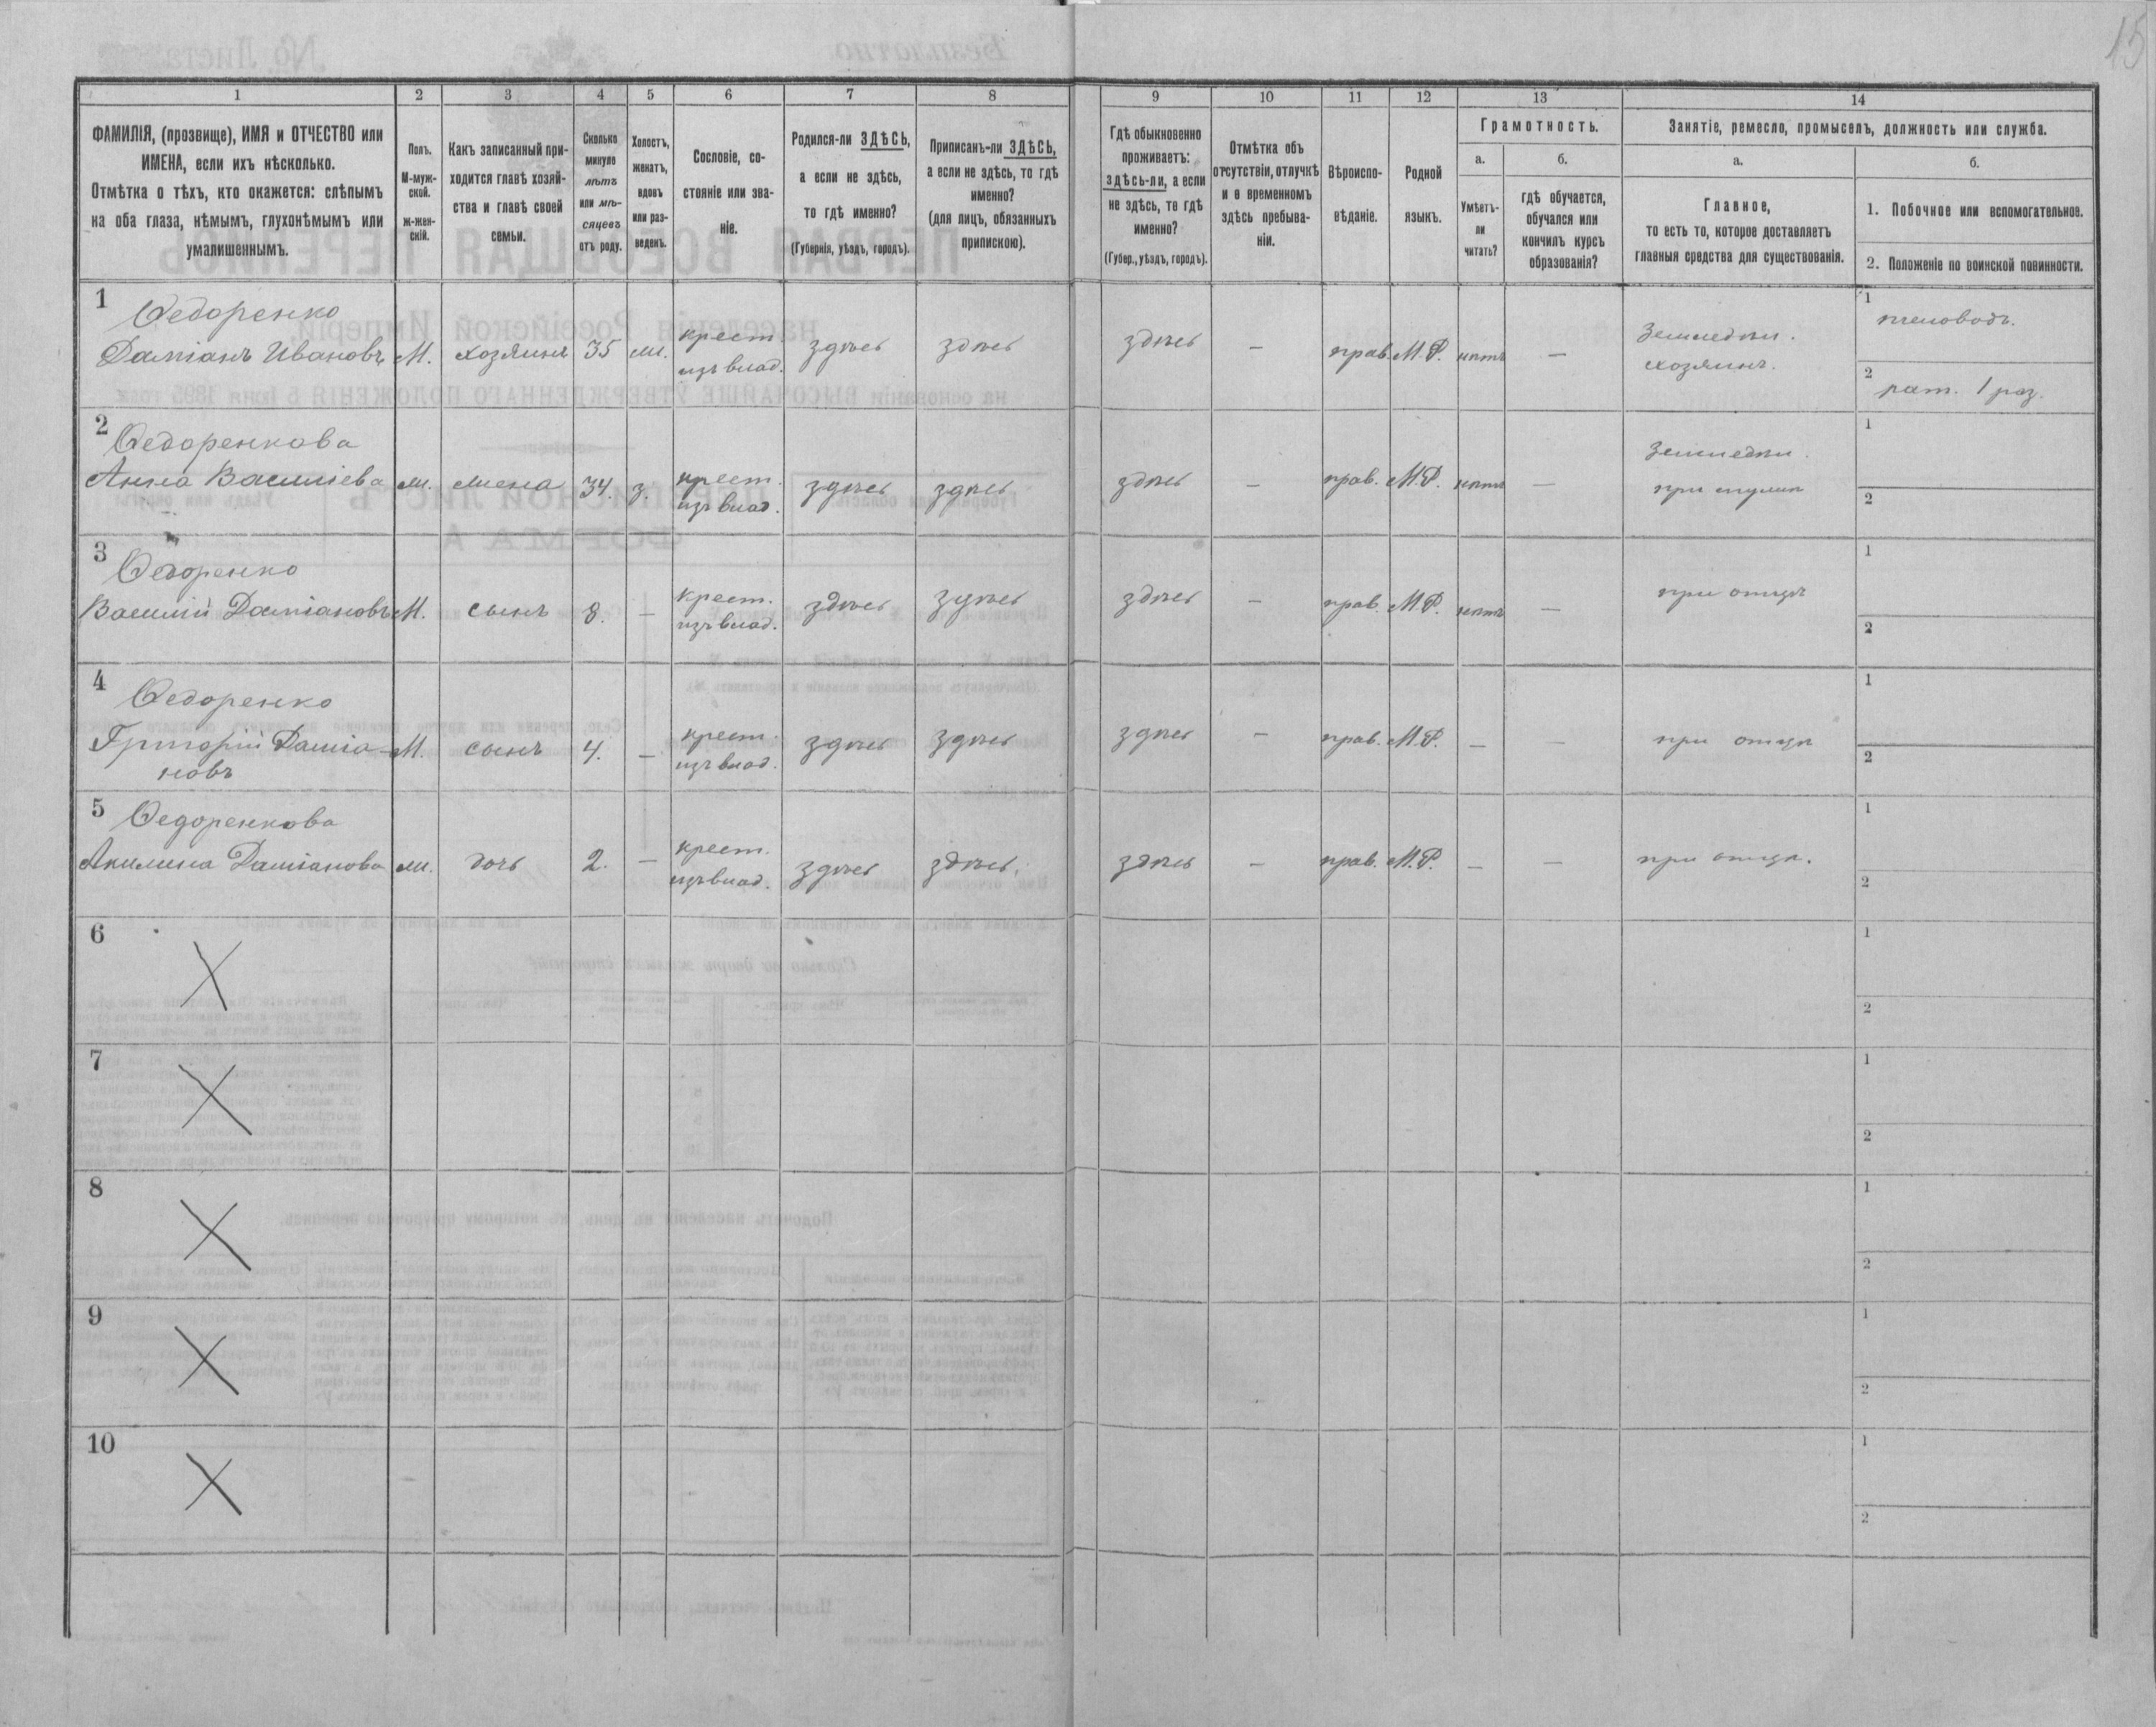 15
1 2 3 4 5 6 7 8 9 10 11 12 13 14
ФАМИЛІЯ, (прозвище), ИМЯ и ОТЧЕСТВО или
ИМЕНА, если ихъ нѣсколько.
Отмѣтка о тѣхъ, кто окажется: слѣпымъ
на оба глаза, нѣмымъ, глухонѣмымъ или
умалишеннымъ.
Полъ.
М-муж-
ской.
ж-жен-
скій.
Какъ записанный при-
ходится главѣ хозяй-
ства и главѣ своей
семьи.
Сколько
минуло
лѣтъ
или мѣ-
сяцевъ
отъ роду.
Холостъ,
женатъ,
вдовъ
или раз-
веденъ.
Сословіе, со-
стояніе или зва-
ніе.
Родился-ли ЗДѢСЬ,
а если не здѣсь,
то гдѣ именно?
(Губернія, уѣздъ, городъ).
Приписанъ-ли ЗДѢСЬ,
а если не здѣсь, то гдѣ
именно?
(для лицъ, обязанныхъ
припискою).
Гдѣ обыкновенно
проживаетъ:
здѣсь-ли, а если
не здѣсь, то гдѣ
именно?
(Губер., уѣздъ, городъ).
Отмѣтка объ
отсутствіи, отлучкѣ
и о временномъ
здѣсь пребыва-
ніи.
Вѣроиспо-
вѣданіе.
Родной
языкъ.
Грамотность.
а.
Умѣетъ-
ли
читать?
б.
гдѣ обучается,
обучался или
кончилъ курсъ
образованія?
Занятіе, ремесло, промыселъ, должность или служба.
а.
Главное,
то есть то, которое доставляетъ
главныя средства для существованія.
б.
1. Побочное или вспомогательное.
2. Положеніе по воинской повинности.
1 Ѳедоренко
Даміанъ Ивановъ М. хозяинъ 35 ж. крест. изъ влад. здѣсь здѣсь здѣсь — прав. М.Р. нѣтъ — Земледѣл. хозяинъ.
1 пчеловодъ.
2 рат. 1 раз.
2 Ѳедоренкова
Анна Василіева ж. жена 34. з. крест. изъ влад. здѣсь здѣсь здѣсь — прав. М.Р. нѣтъ — Земледѣл. при мужѣ
1
2
3 Ѳедоренко
Василій Даміановъ М. сынъ 8. — крест. изъ влад. здѣсь здѣсь здѣсь — прав. М.Р. нѣтъ — при отцѣ
1
2
4 Ѳедоренко
Григорій Даміа- М. сынъ 4. — крест. изъ влад. здѣсь здѣсь здѣсь — прав. М.Р. — — при отцѣ
новъ
1
2
5 Ѳедоренкова
Акилина Даміанова ж. дочь 2. — крест. изъ влад. здѣсь здѣсь. здѣсь — прав. М.Р. — — при отцѣ.
1
2
6
1
2
7
1
2
8
1
2
9
1
2
10
1
2